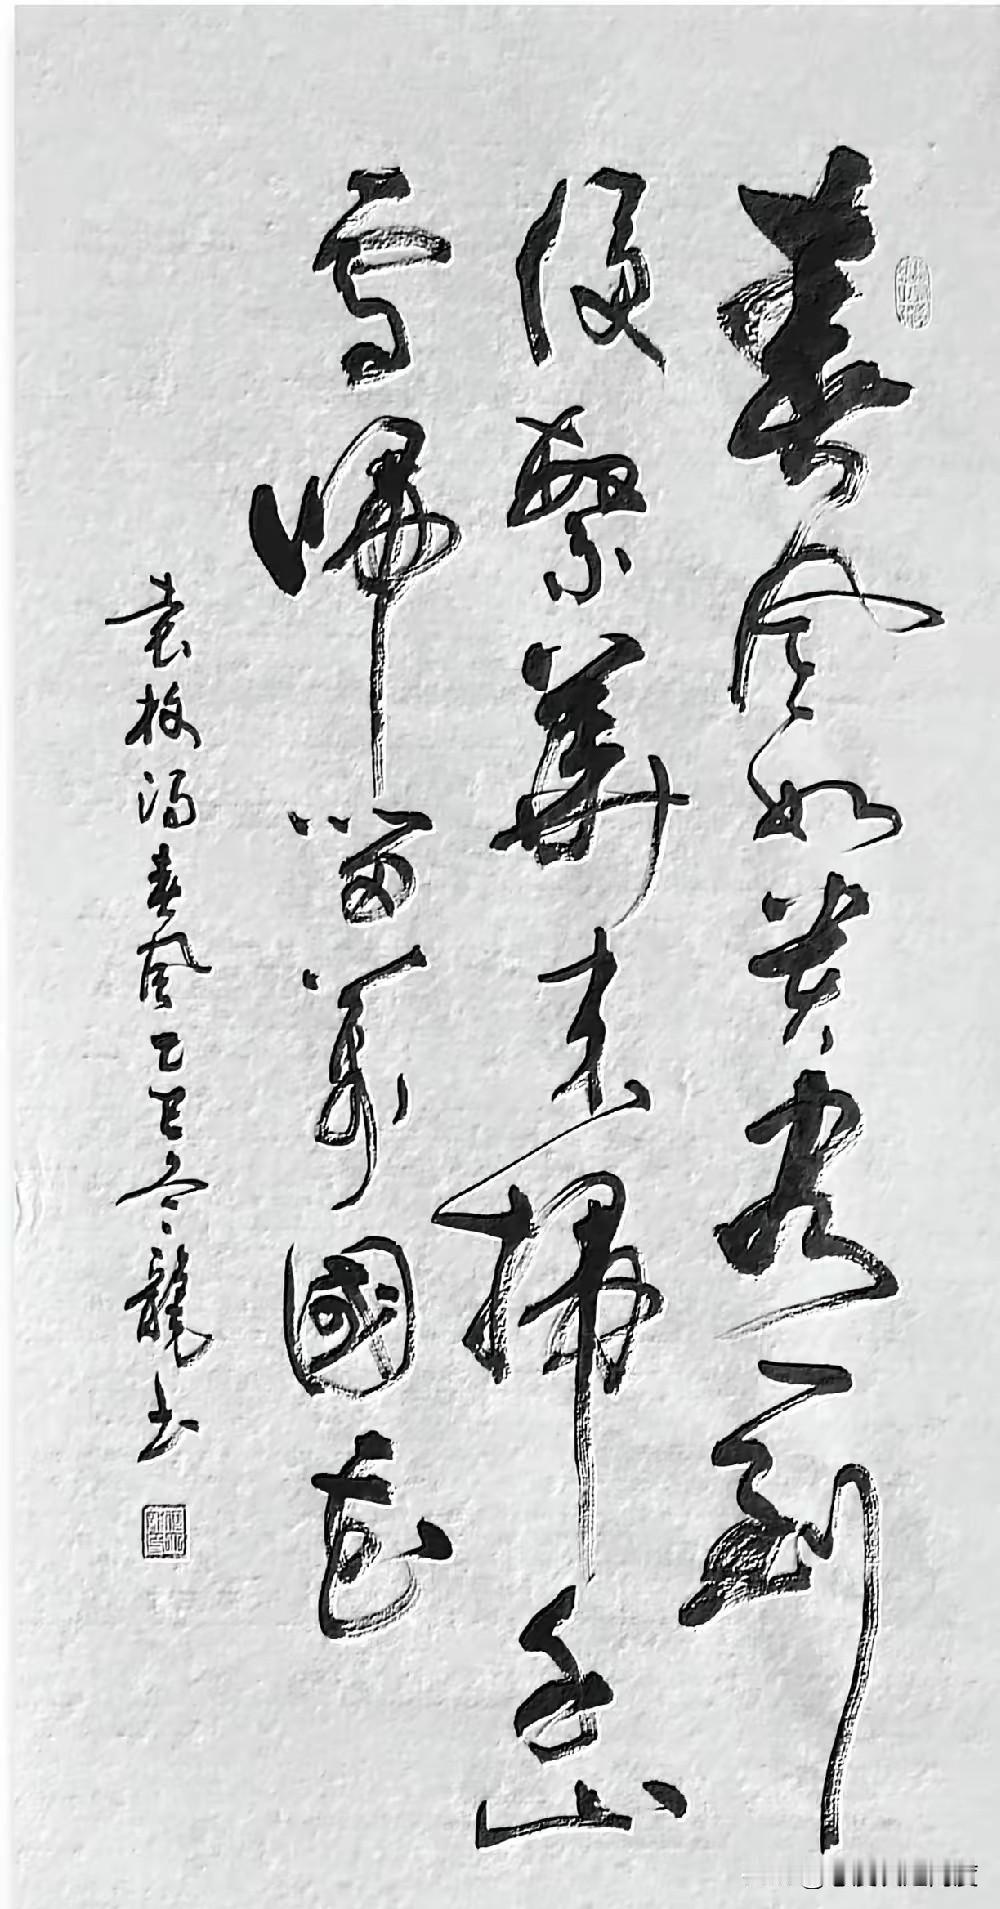 春風如貴客一到
便繁華来掃千山
雪歸留萬國花
袁枚詩春風乙巳冬龍書